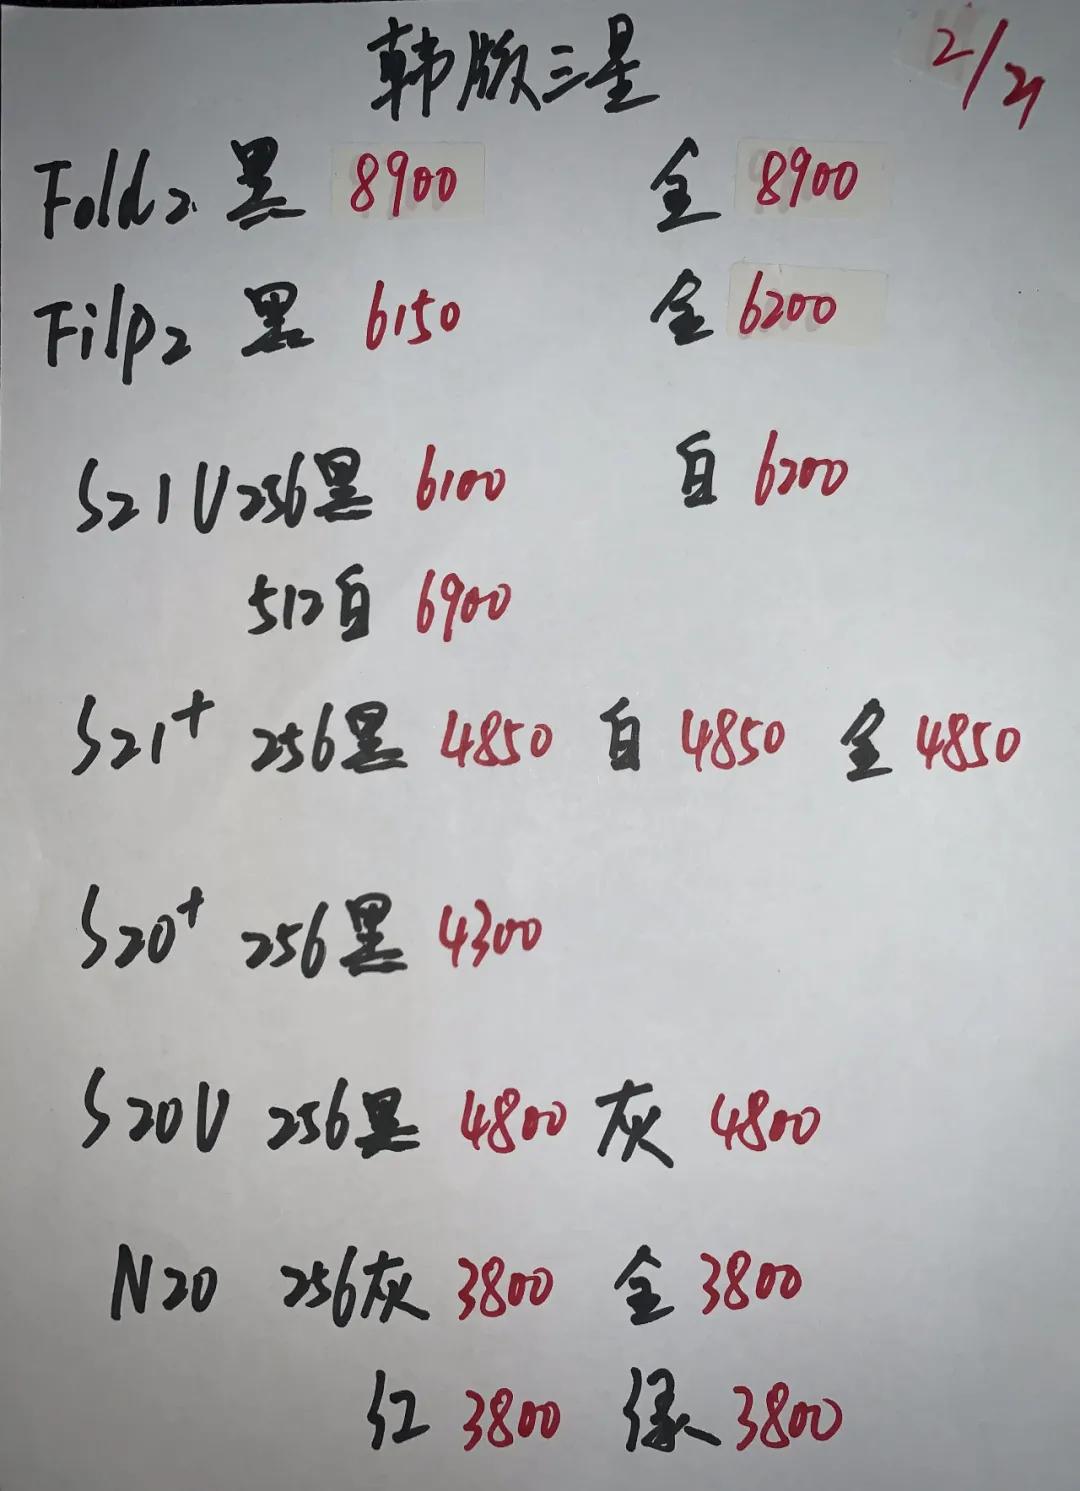 韩版三星 2/21
Fold2 黑 8900 金 8900
Filp2 黑 6150 金 6200
S21U 256黑 6100 白 6200
512白 6900
S21+ 256黑 4850 白 4850 金 4850
S20+ 256黑 4300
S20U 256黑 4800 灰 4800
N20 256灰 3800 金 3800
红 3800 绿 3800